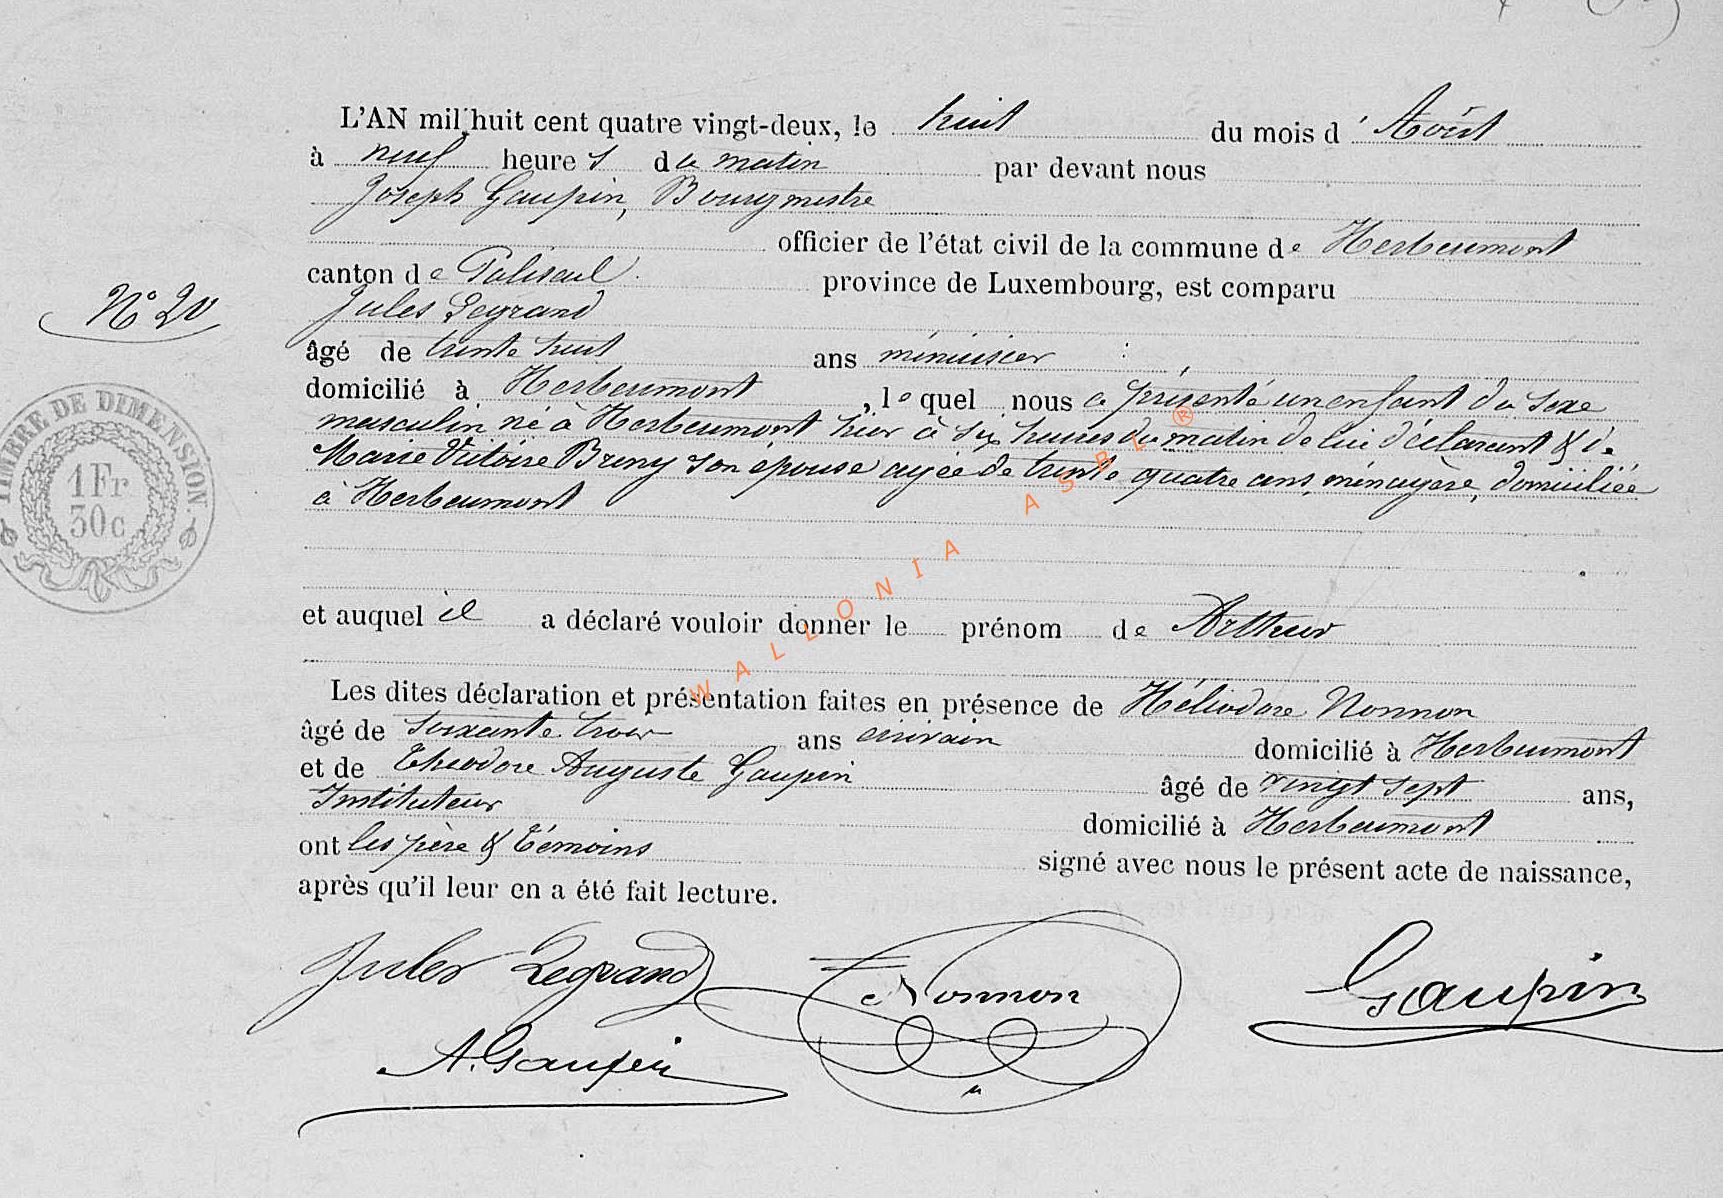 L'AN mil huit cent quatre vingt-deux, le huit du mois d' Août
à neuf heures du matin par devant nous
Joseph Gaupin, Bourgmestre
officier de l'état civil de la commune de Herbeumont
canton de Paliseul province de Luxembourg, est comparu
N° 20
Jules Legrand
âgé de trente huit ans menuisier
domicilié à Herbeumont, lequel nous a présenté un enfant du sexe
masculin né à Herbeumont hier à six heures du matin de lui déclarant & de
Marie Victoire son épouse agée de trente quatre ans, ménagère, domiciliée
à Herbeumont
TIMBRE DE DIMENSION
1 Fr
30 c
et auquel il a déclaré vouloir donner le prénom de Arthur
Les dites déclaration et présentation faites en présence de Héliodore Nonnon
âgé de soixante trois ans écrivain domicilié à Herbeumont
et de Théodore Auguste Gaupin âgé de vingt sept ans,
Instituteur domicilié à Herbeumont
ont les père & témoins signé avec nous le présent acte de naissance,
après qu'il leur en a été fait lecture.
Jules Legrand Nonnon Gaupin
A. Gaupin
WALLONIA ASBL ®